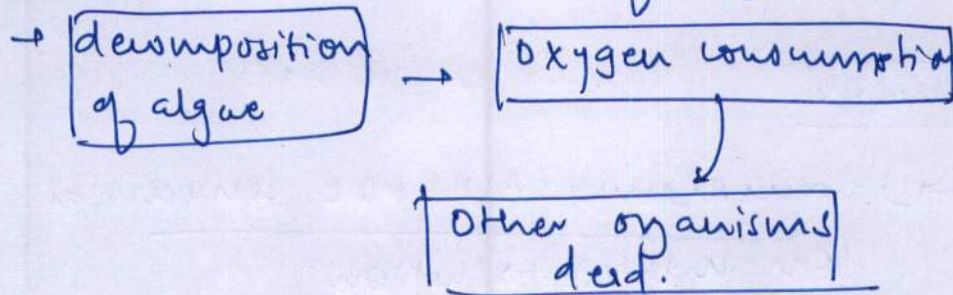 → decomposition
of algae
→ Oxygen consumption
Other organisms
dead.